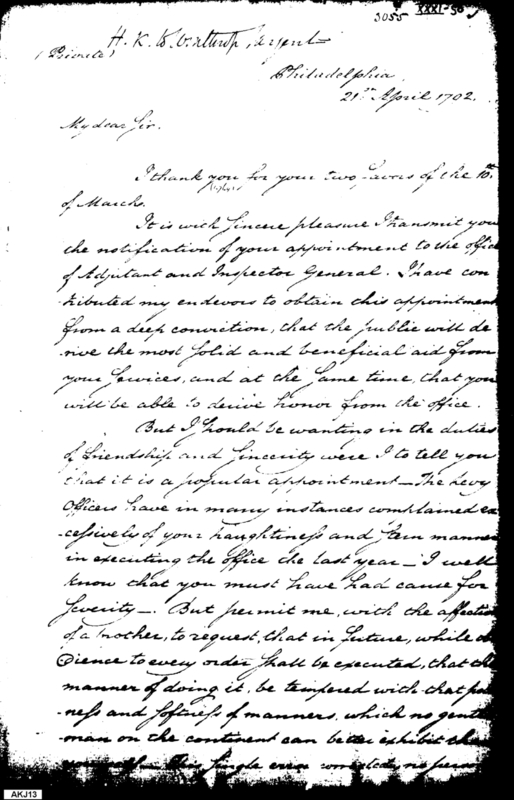 3055 XXXI-50
H. K. to Winthrop Sargent
(Private)
Philadelphia
21st April 1792.
My dear Sir.
I thank you for your two favors of the 10th
of March.
It is with sincere pleasure I transmit you
the notification of your appointment to the office
of Adjutant and Inspector General. I have con
tributed my endevors to obtain this appointment
from a deep conviction, that the public will de
rive the most solid and beneficial aid from
your services, and at the same time, that you
will be able to derive honor from the office.
But I should be wanting in the duties
of friendship and sincerity were I to tell you
that it is a popular appointment — The Levy
Officers have in many instances complained ex
cessively of your haughtiness and stern manner
in executing the office the last year — I well
know that you must have had cause for
severity —. But permit me, with the affection
of a brother, to request, that in future, while obe
dience to every order shall be executed, that the
manner of doing it, be tempered with that
ness and softness of manners, which no gentle
man on the continent can better exhibit than
yourself — This single error
AKJ13